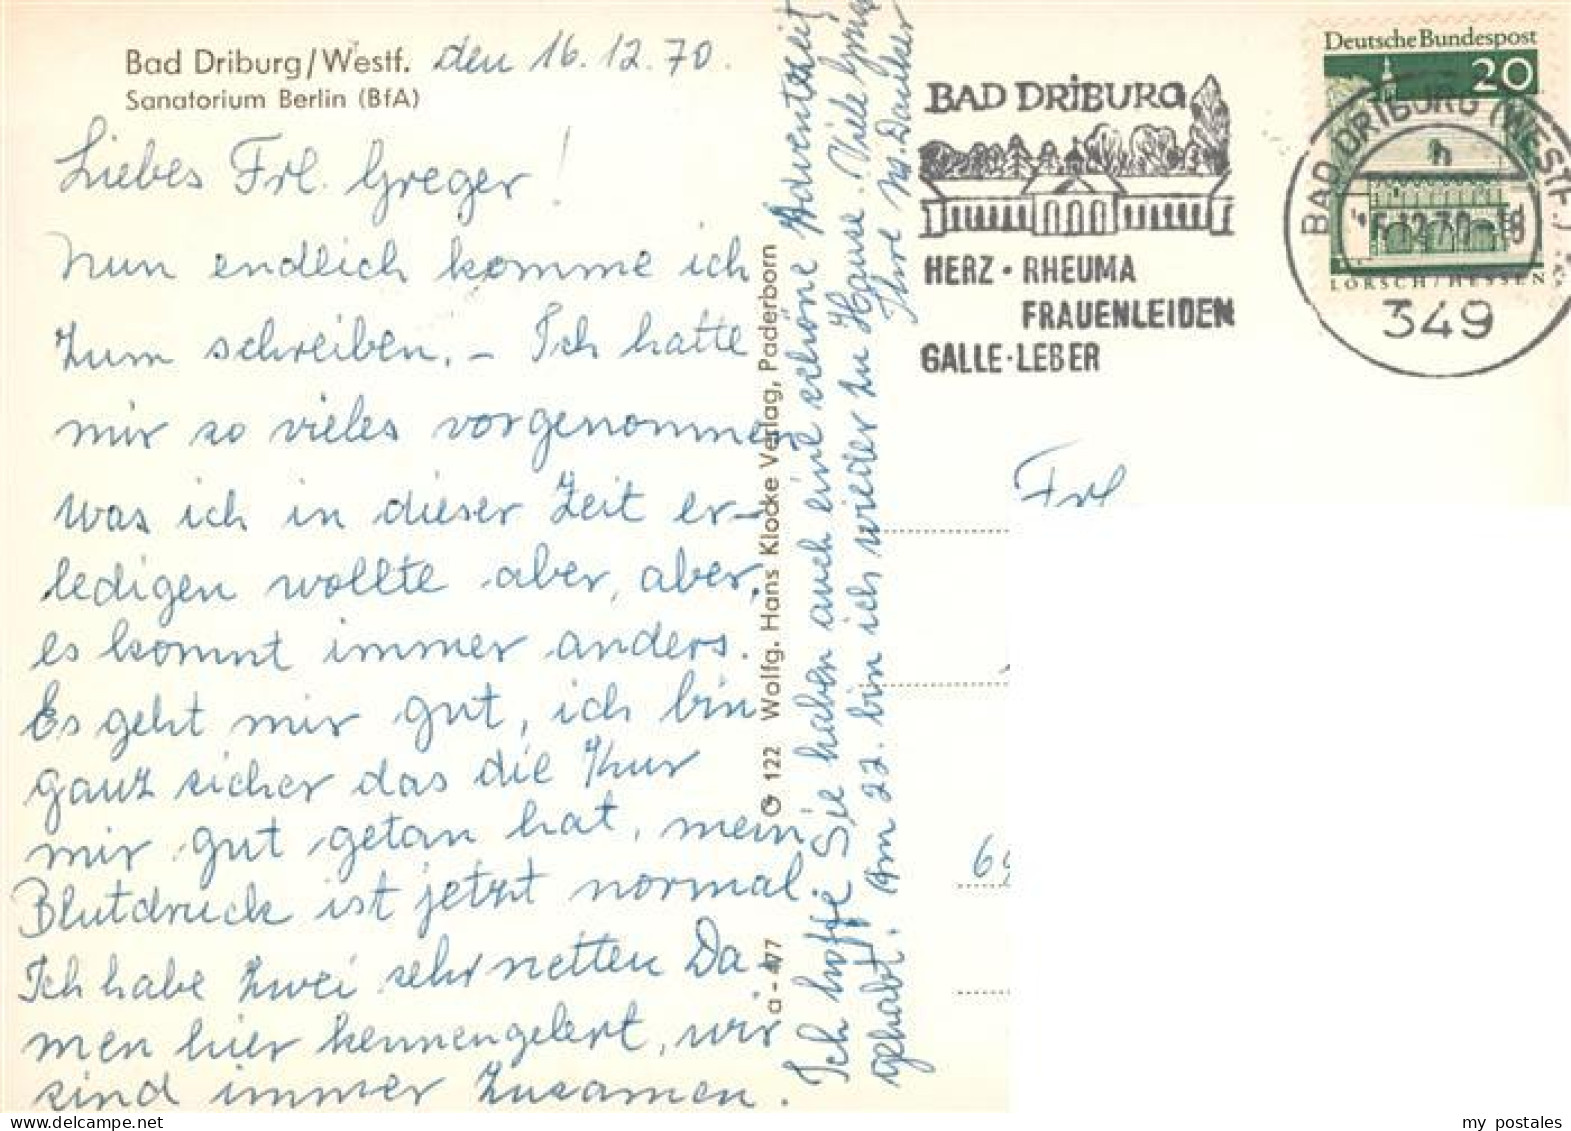 Bad Driburg/Westf. den 16.12.70.
Sanatorium Berlin (BfA)
Liebes Frl. Greger!
Nun endlich komme ich
zum schreiben. – Ich hatte
mir so vieles vorgenommen
was ich in dieser Zeit er-
ledigen wollte aber, aber,
es kommt immer anders.
Es geht mir gut, ich bin
ganz sicher das die Kur
mir gut getan hat, mein
Blutdruck ist jetzt normal
Ich habe zwei sehr netten Da-
men hier kennengelernt, wir
sind immer zusamen.
Ich hoffe Sie haben auch eine schöne Adventzeit
gehabt. Am 22. bin ich wieder zu Hause. Viele Grüße
Ihre M.
a - 477 G 122 Wolfg. Hans Klocke Verlag, Paderborn
BAD DRIBURG
HERZ · RHEUMA
FRAUENLEIDEN
GALLE · LEBER
Deutsche Bundespost
20
LORSCH/HESSEN
BAD DRIBURG (WESTF.)
h
12.70-18
349
Frl
my postales